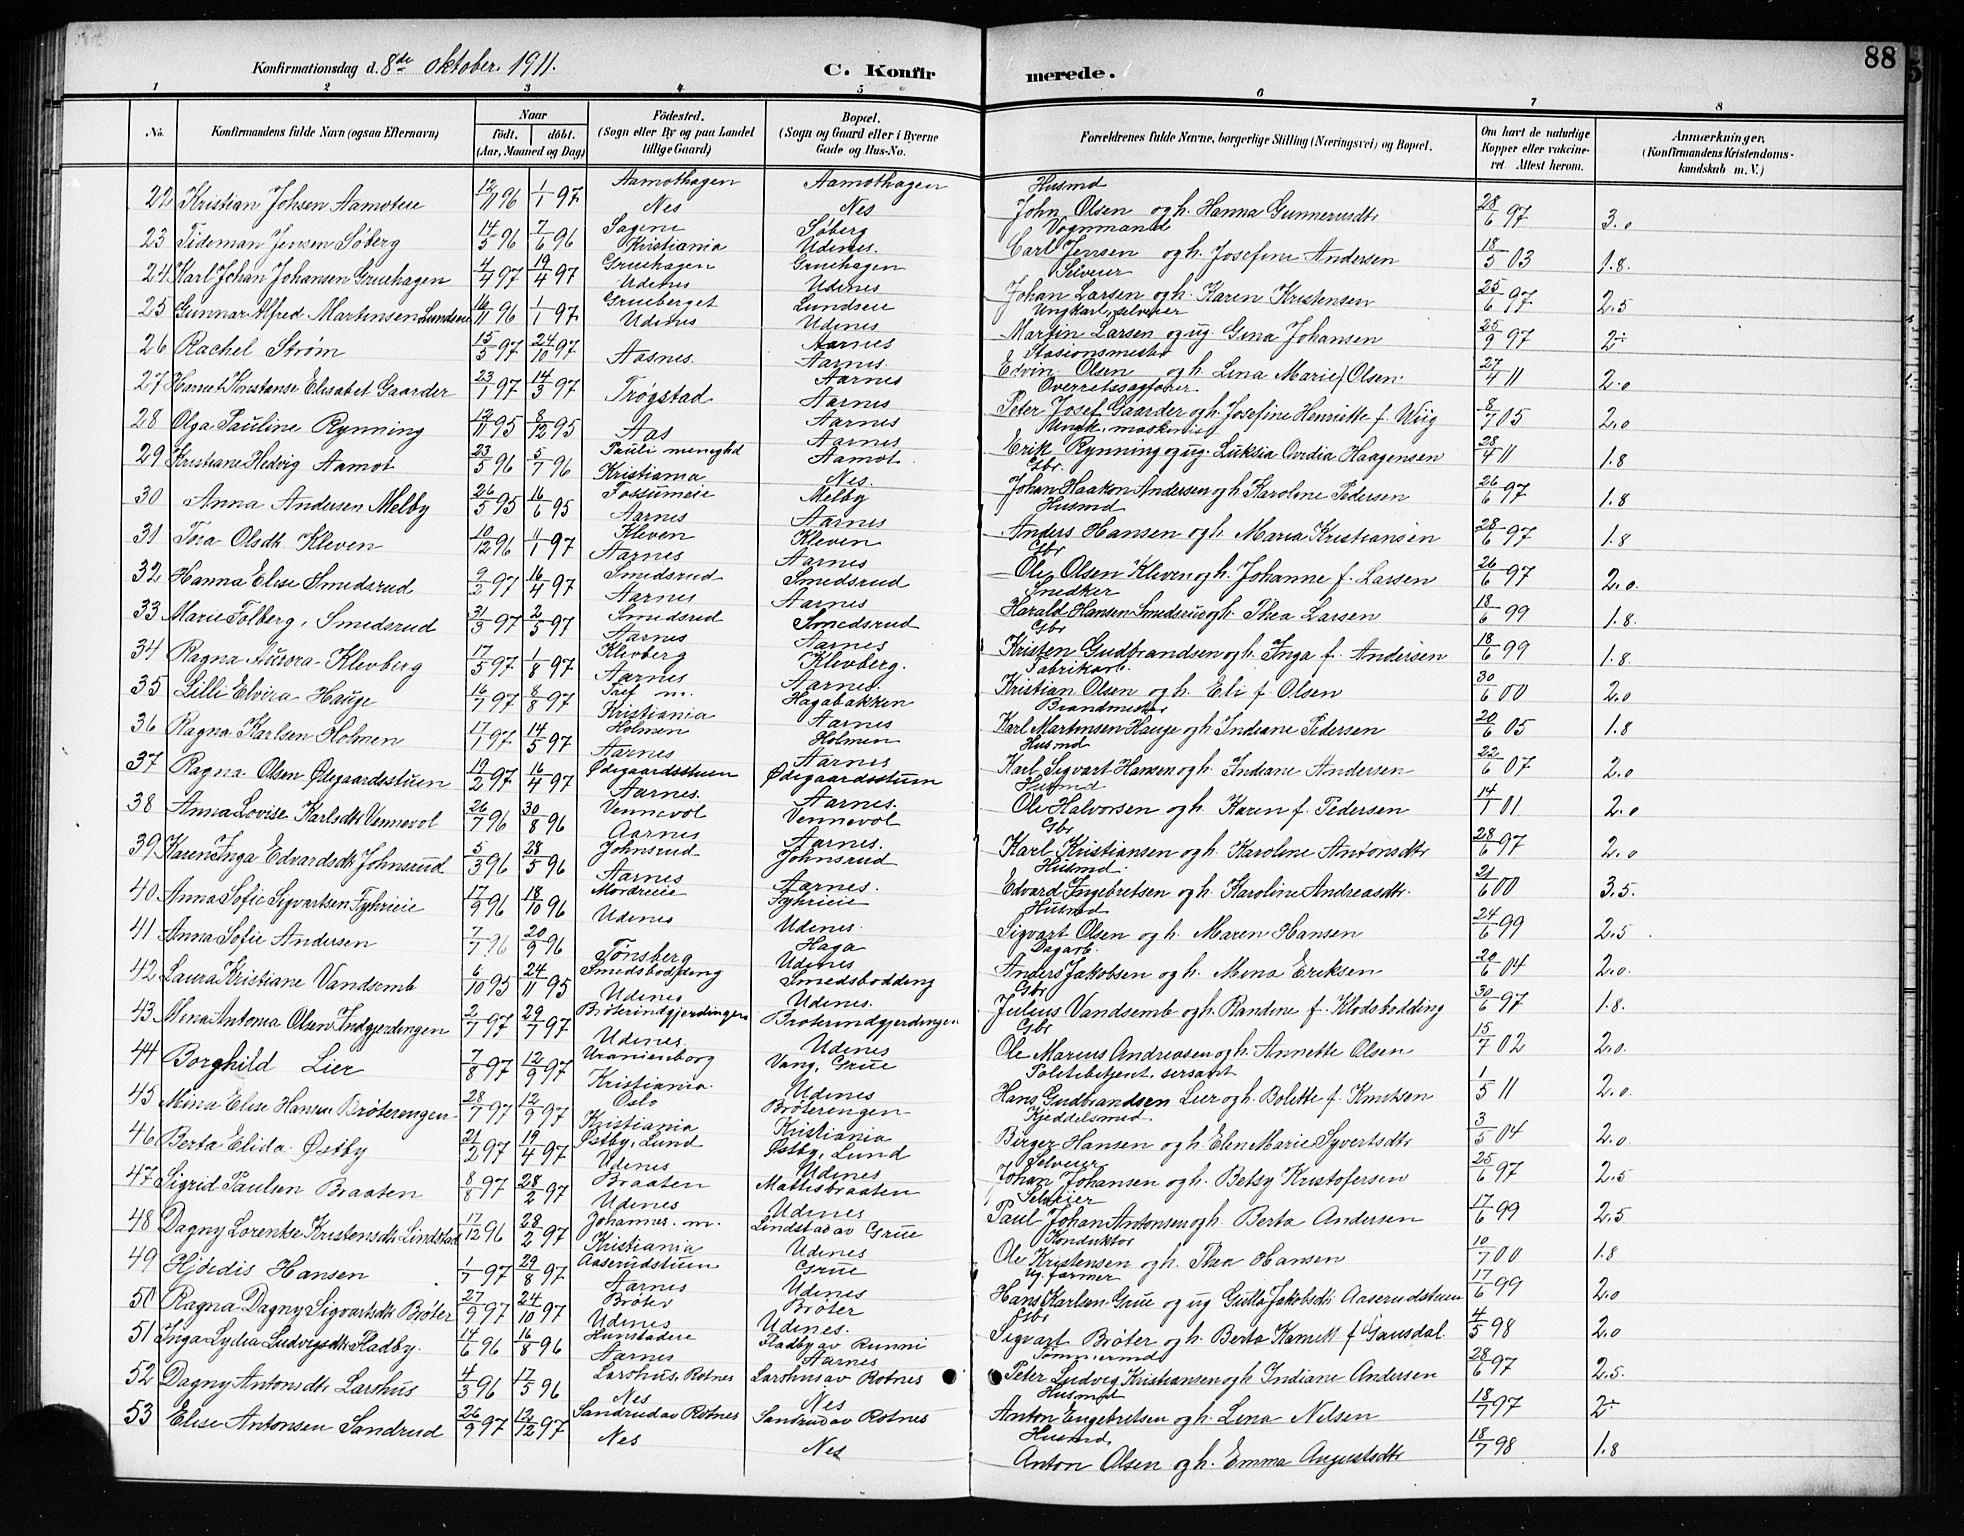 88
Konfirmationsdag d. 8de oktober 1911. C. Konfirmerede.
1 2 3 4 5 6 7 8
No. Konfirmandens fulde Navn (ogsaa Efternavn) Naar födt. döbt. (Aar, Maaned og Dag) Födested. (Sogn eller By og paa Landet tillige Gaard) Bopæl. (Sogn og Gaard eller i Byerne Gade og Hus-No. Forældrenes fulde Navne, borgerlige Stilling (Næringsvei) og Bopæl. Om havt de naturlige Kopper eller vaccineret. Attest herom. Anmærkninger. (Konfirmandens Kristendomskundskab m. V.)
22 Kristian Johsen Aamoteie 12/11 96 1/1 97 Aamothagen Nes Aamothagen Nes Husmd John Olsen og h. Hanna Gunnerusdtr 28/6 97 3.0
23 Tideman Jensen Søberg 14/5 96 7/6 96 Sagene Kristiania Søberg Udenes. Vognmand Carl Jensen og h. Josefine Andersen 18/5 03 1.8.
24 Karl Johan Johansen Gruehagen 4/4 97 19/4 97 Gruehagen Udenes Gruehagen Udenes Selveier Johan Larsen og h. Karen Kristensen 25/6 97 2.5
25 Gunnar Alfred Martinsen Lundseie 16/11 96 1/1 97 Grueberget Udenes Lundseie Udenes Ungkarl, selveier Martin Larsen og ug. Gina Johansen 25/9 97 2÷
26 Rachel Strøm 15/5 97 24/10 97 Aasnes. Aarnes Aarnes. Stasionsmester Edvin Olsen og h. Lina Marie f. Olsen. 27/4 11 2.0
27 Harriet Konstanse Elisabet Gaarder 23/1 97 14/3 97 Trøgstad Aarnes Aarnes Overretssagfører Peter Josef Gaarder og h. Josefine Henriette f. Wiig 8/7 05 2.0
28 Olga Pauline Rynning 12/11 95 8/12 95 Aas Aarnes Aarnes Ungk. maskinist Erik Rynning og ug. Luksia Ovidia Haagensen 28/4 11 1.8
29 Kristiane Hedvig Aamot 23/5 96 5/7 96 Pauli menighd Kristiania Aamot Nes. Gbr. Johan Haakon Andersen og h. Karoline Pedersen 26/6 97 1.8
30 Anna Andersen Melby 26/5 95 16/6 95 Fossumeie Aarnes Melby Aarnes Husmd Anders Hansen og h. Maria Kristiansen 28/6 97 1.8
31 Tora Olsdt. Kleven 10/12 96 11/1 97 Kleven Aarnes Kleven Aarnes Gbr Ole Olsen Kleven og h. Johanne f. Larsen 26/6 97 2.0.
32 Hanna Elise Smedsrud 9/2 97 16/4 97 Smedsrud Aarnes Smedsrud Aarnes Snedker Harald Hansen Smedsrud og h. Thea Larsen 18/6 99 1.8.
33 Marie Tolberg. Smedsrud 31/3 97 2/5 97 Smedsrud Aarnes Smedsrud Aarnes Gbr Kristen Gudbrandsen og h. Inga f. Andersen 18/6 99 1.8.
34 Ragna Aurora Klevberg 17/5 97 1/8 97 Klevberg Aarnes Klevberg. Aarnes. Fabrikarb. Kristian Olsen og h. Eli f. Olsen 30/6 00 2.0
35 Lilli Elvira Hauge 16/7 97 8/8 97 m. Kristiania Hagabakken Aarnes Brandmester Karl Martinsen Hauge og h. Indiane Pedersen 20/6 05 1.8
36 Ragna Karlsen Holmen 17/1 97 14/5 97 Holmen Aarnes Holmen Aarnes Husmd Karl Sigvart Hansen og h. Indiane Andersen 22/6 07 2.0
37 Ragna Olsen Ødegaardsstuen 19/2 97 16/4 97 Ødegaardsstuen Aarnes. Ødegaardsstuen Aarnes. Husmd Ole Halvorsen og h. Karen f. Pedersen 14/1 01 2.0
38 Anna Lovise Karlsdtr Vennevol 26/7 96 30/8 96 Vennevol Aarnes Vennevol Aarnes. Gbr Karl Kristiansen og h. Karoline Antonsdtr 28/6 97 2.0
39 Karen Inga Edvardsdt Johnsrud 5/3 96 28/5 96 Johnsrud Aarnes Johnsrud Aarnes. Husmd. Edvard Ingebretsen og h. Karoline Andreasdtr. 21/6 00 3.5.
40 Anna Sofie Sigvartsen Fyhrieie 17/9 96 18/10 96 Mordreie Udenes Fyhrieie Udenes. Husmd Sigvart Olsen og h. Maren Hansen 24/6 99 2.5
41 Anna Sofie Andersen 7/7 96 20/9 96 Tønsberg Haga Udenes Dagarb. Anders Jakobsen og h. Mina Eriksen 20/6 04 2.0.
42 Laura Kristiane Vandsemb 6/10 95 24/11 95 Smedsbodding Udenes Smedsbodding Udenes. Gbr Julius Vandsemb og h. Randine f. Klodsbodding 30/6 97 1.8.
43 Mina Antonia Olsen Indgjerdingen 2/7 97 29/7 97 Brøterindgjerdingen Udenes. Brøterindgjerdingen Udenes Gbr Ole Marius Andreasen og h. Annette Olsen 15/7 02 2.0.
44 Borghild Lier 7/8 97 12/9 97 Uranienborg Kristiania. Vang, Grue Udenes Politibetjent, sersant Hans Gudbrandsen Lier og h. Bolette f. Knutsen 1/5 11 2.0.
45 Mina Elise Hansen Brøterengen 28/7 97 12/9 97 Oslo Kristiania Brøterengen Kristiania Kjeddelsmed Birger Hansen og h. Elen Marie Syvertsdtr 3/5 04 2.0.
46 Berta Elida Østby 21/2 97 19/4 97 Østby, Lund Udenes Østby, Lund Udenes Selveier Johan Johansen og h. Betsy Kristofersen 25/6 97 2.5
47 Sigrid Paulsen Braaten 8/8 97 28/2 97 Braaten Udenes Mattisbraaten Udenes Selveier Paul Johan Antonsen og h. Berta Andersen 17/6 99 2.5
48 Dagny Lorentse Kristensdt Lindstad 17/12 96 28/2 97 Johannes. m. Kristiania Lindstad av Grue Udenes Konduktør Ole Kristensen og h. Thea Hansen 10/7 00 1.8
49 Hjørdis Hansen 1/7 97 29/8 97 Aaserudstuen Aarnes Grue Udenes Ug. farmer Hans Karlsen Grue og ug Gulla Jakobsdtr Aaserudstuen 17/6 99 2.0
50 Ragna Dagny Sigvartsdt Brøter 27/9 97 24/10 97 Brøter Udenes Brøter Udenes. Gbr Sigvart Brøter og h. Berta Kamilla f. Gausdal. 4/5 98 2.0
51 Inga Lydia Ludvigsdtr Fladby. 14/6 96 16/8 96 Hunstadeie Aarnes Fladby av Runni Aarnes Tømmermd Peter Ludvig Kristiansen og h. Indiane Andersen 28/6 97 2.5.
52 Dagny Antonsdtr Larshus 4/3 96 17/5 96 Larshus, Rotnes Nes Larshus av Rotnes Nes Husmd Anton Engebretsen og h. Lina Nilsen 18/7 97 2÷
53 Elise Antonsen Sandrud 26/9 97 12/12 97 Sandrud av Rotnes Nes Sandrud av Rotnes Nes Husmd Anton Olsen og h. Emma Augustsdtr 18/7 98 1.8